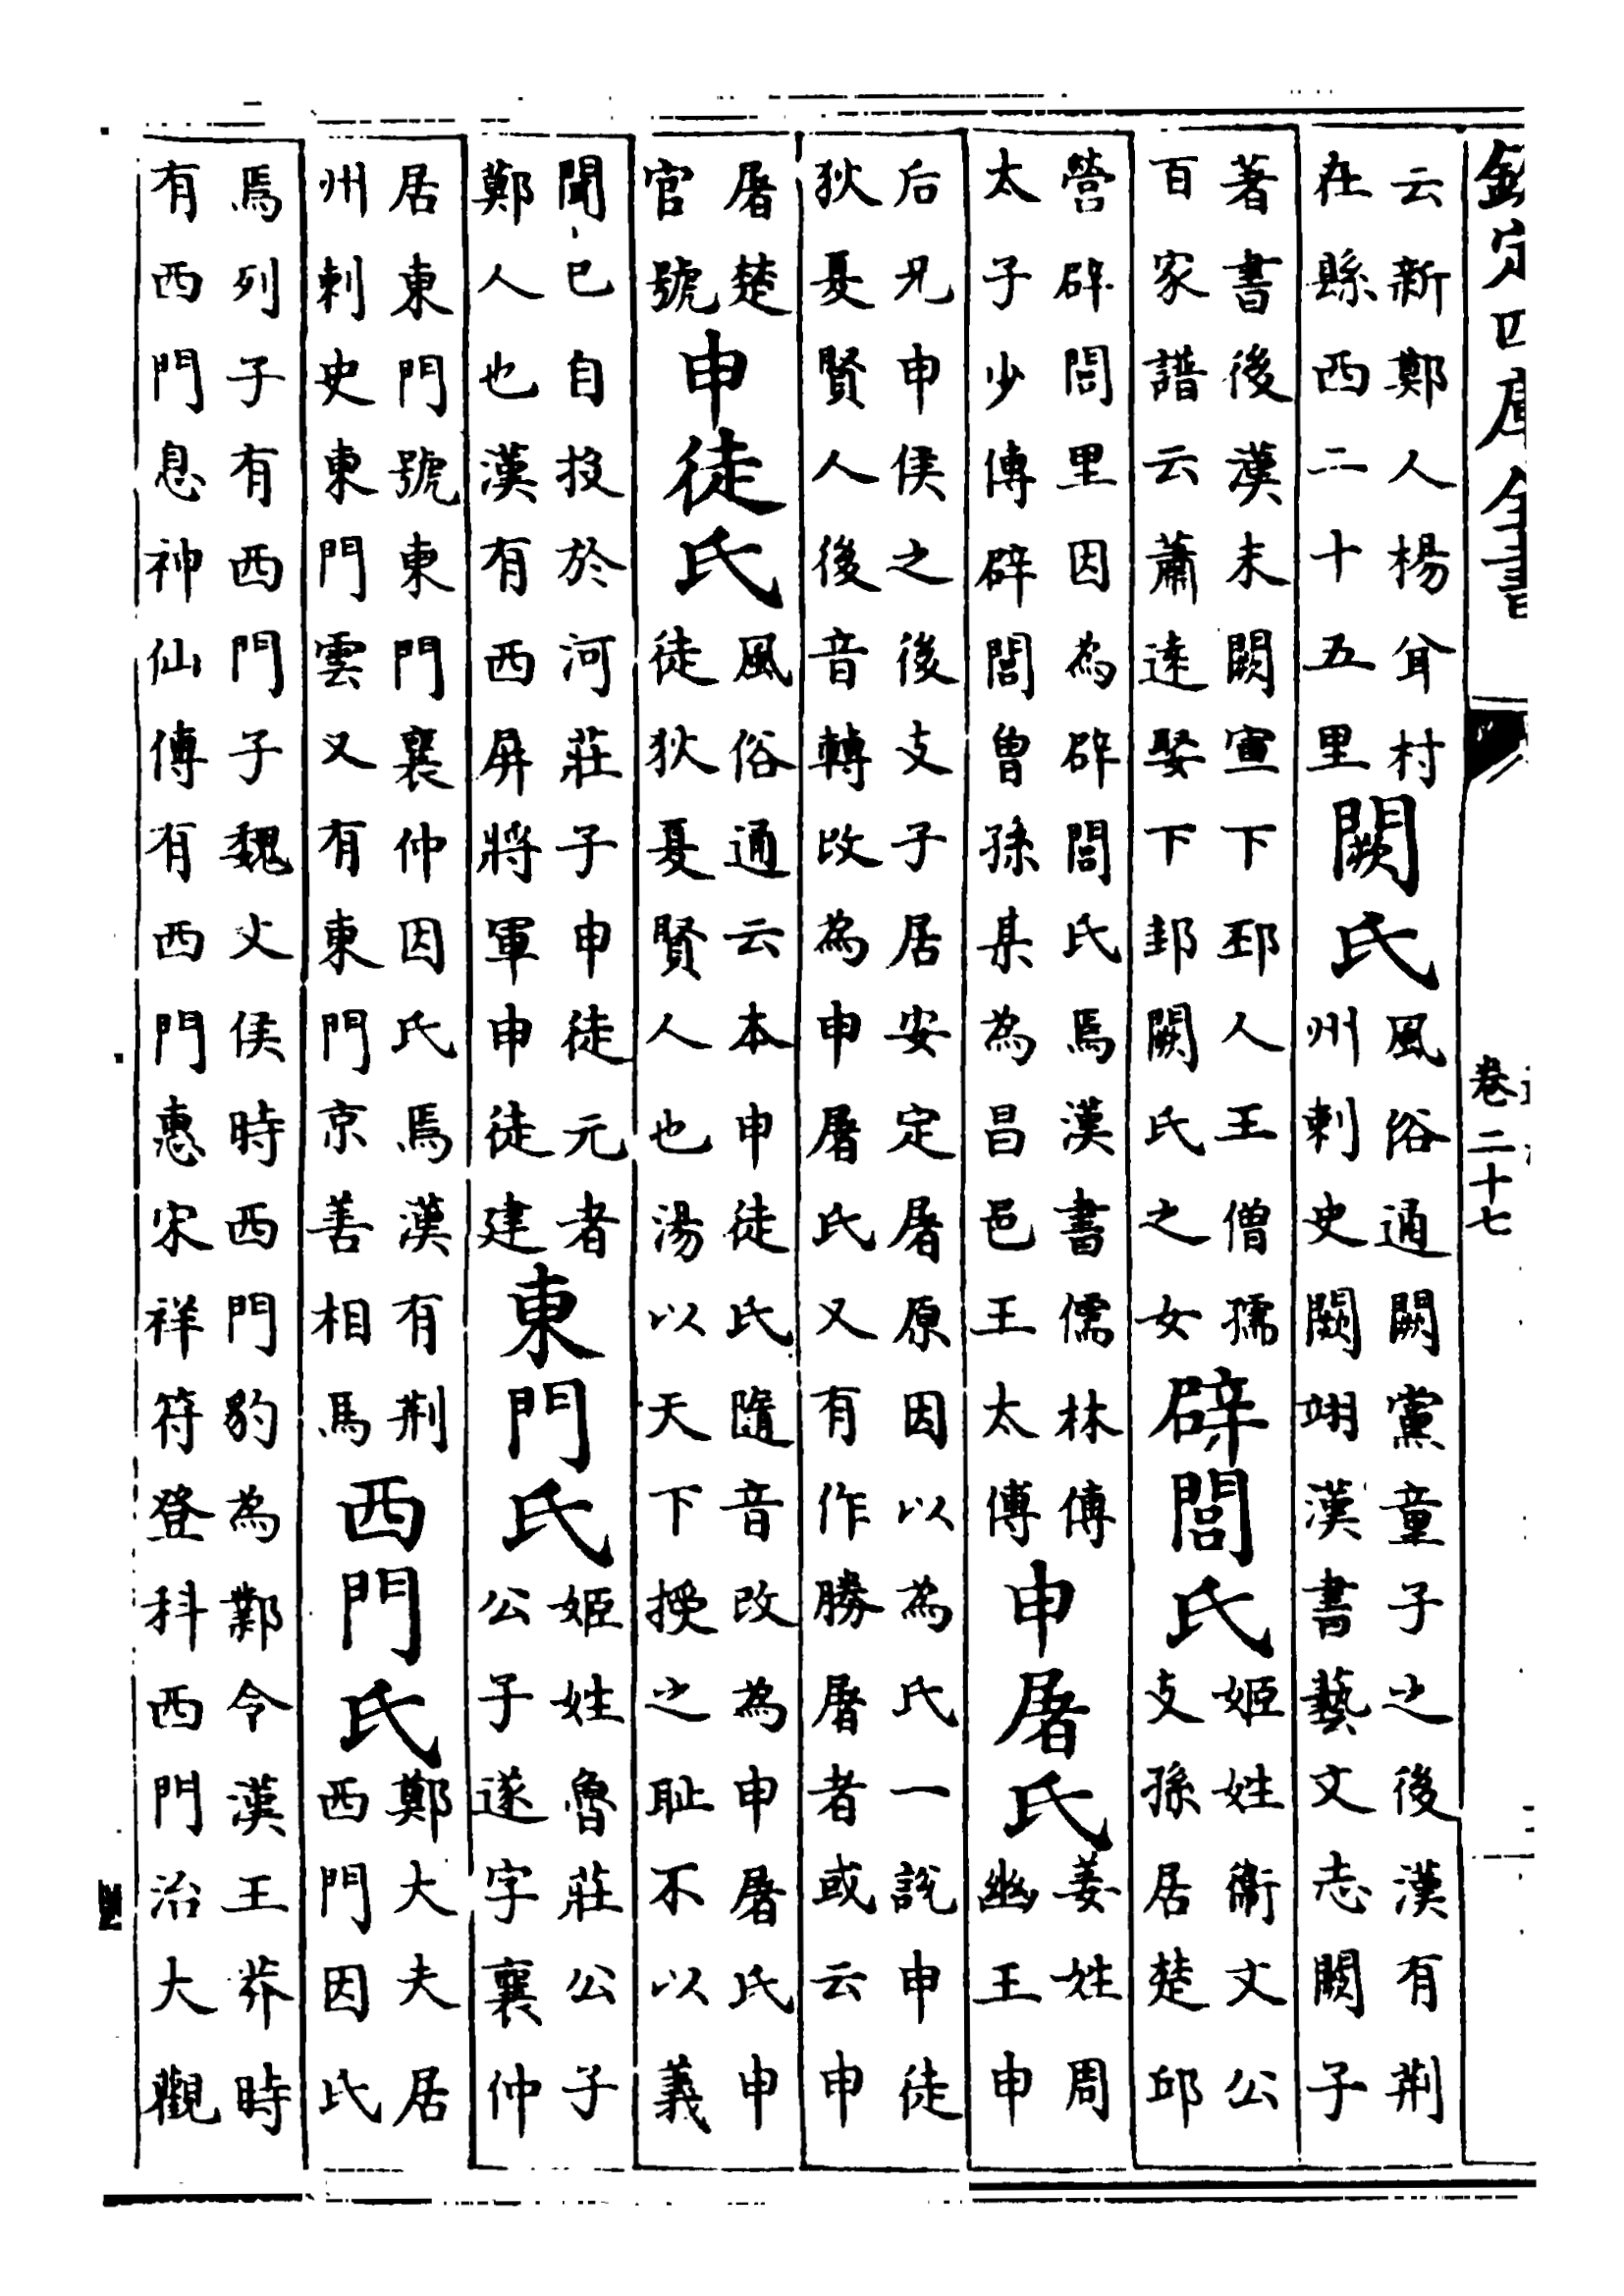 欽定四庫全書
卷二十七
云新鄭人楊耸村
在縣西二十五里
闕氏
風俗通闕黨童子之後漢有荆
州刺史闕翊漢書藝文志闕子
著書後漢末闕宣下邳人王僧孺
百家譜云蕭逵娶下邽闕氏之女
辟閭氏
姬姓衞文公
支孫居楚邱
營辟閭里因為辟閭氏焉漢書儒林傳
太子少傅辟閭曾孫某為昌邑王太傅
申屠氏
姜姓周
幽王申
后兄申侯之後支子居安定屠原因以為氏一說申徒
狄夏賢人後音轉改為申屠氏又有作勝屠者或云申
屠楚
官號
申徒氏
風俗通云本申徒氏隨音改為申屠氏申
徒狄夏賢人也湯以天下授之耻不以義
聞已自投於河莊子申徒元者
鄭人也漢有西屏將軍申徒建
東門氏
姬姓魯莊公子
公子遂字襄仲
居東門號東門襄仲因氏焉漢有荆
州刺史東門雲又有東門京善相馬
西門氏
鄭大夫居
西門因氏
焉列子有西門子魏文侯時西門豹為鄴令漢王莽時
有西門息神仙傳有西門惠宋祥符登科西門治大觀